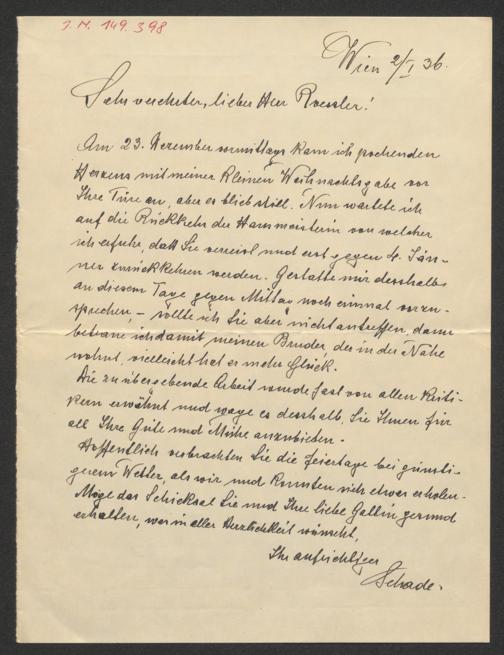 J. N. 149.398
Wien 2/I 36.
Sehr verehrter, lieber Herr Roessler!
Am 23. Dezember vormittags kam ich pochenden
Herzens mit meiner kleinen Weihnachtsgabe vor
Ihre Türe an, aber es blieb still. Nun wartete ich
auf die Rückkehr der Hausmeisterin von welcher
ich erfuhr, daß Sie verreist und erst gegen 4. Jän-
ner zurückkehren werden. Gestatte mir desshalb
an diesem Tage gegen Mittag noch einmal vorzu-
sprechen, – sollte ich Sie aber nicht antreffen, dann
betraue ich damit meinen Bruder, der in der Nähe
wohnt, vielleicht hat er mehr Glück.
Die zu übergebende Arbeit wurde fast von allen Kriti-
kern erwähnt und wage es desshalb, Sie Ihnen für
all Ihre Güte und Mühe anzubieten.
Hoffentlich verbrachten Sie die Feiertage bei günsti-
gerem Wetter, als wir und konnten sich etwas erholen.
Möge das Schicksal Sie und Ihre liebe Gattin gesund
erhalten, was in aller Herzlichkeit wünscht,
Ihr aufrichtiger
Schade.